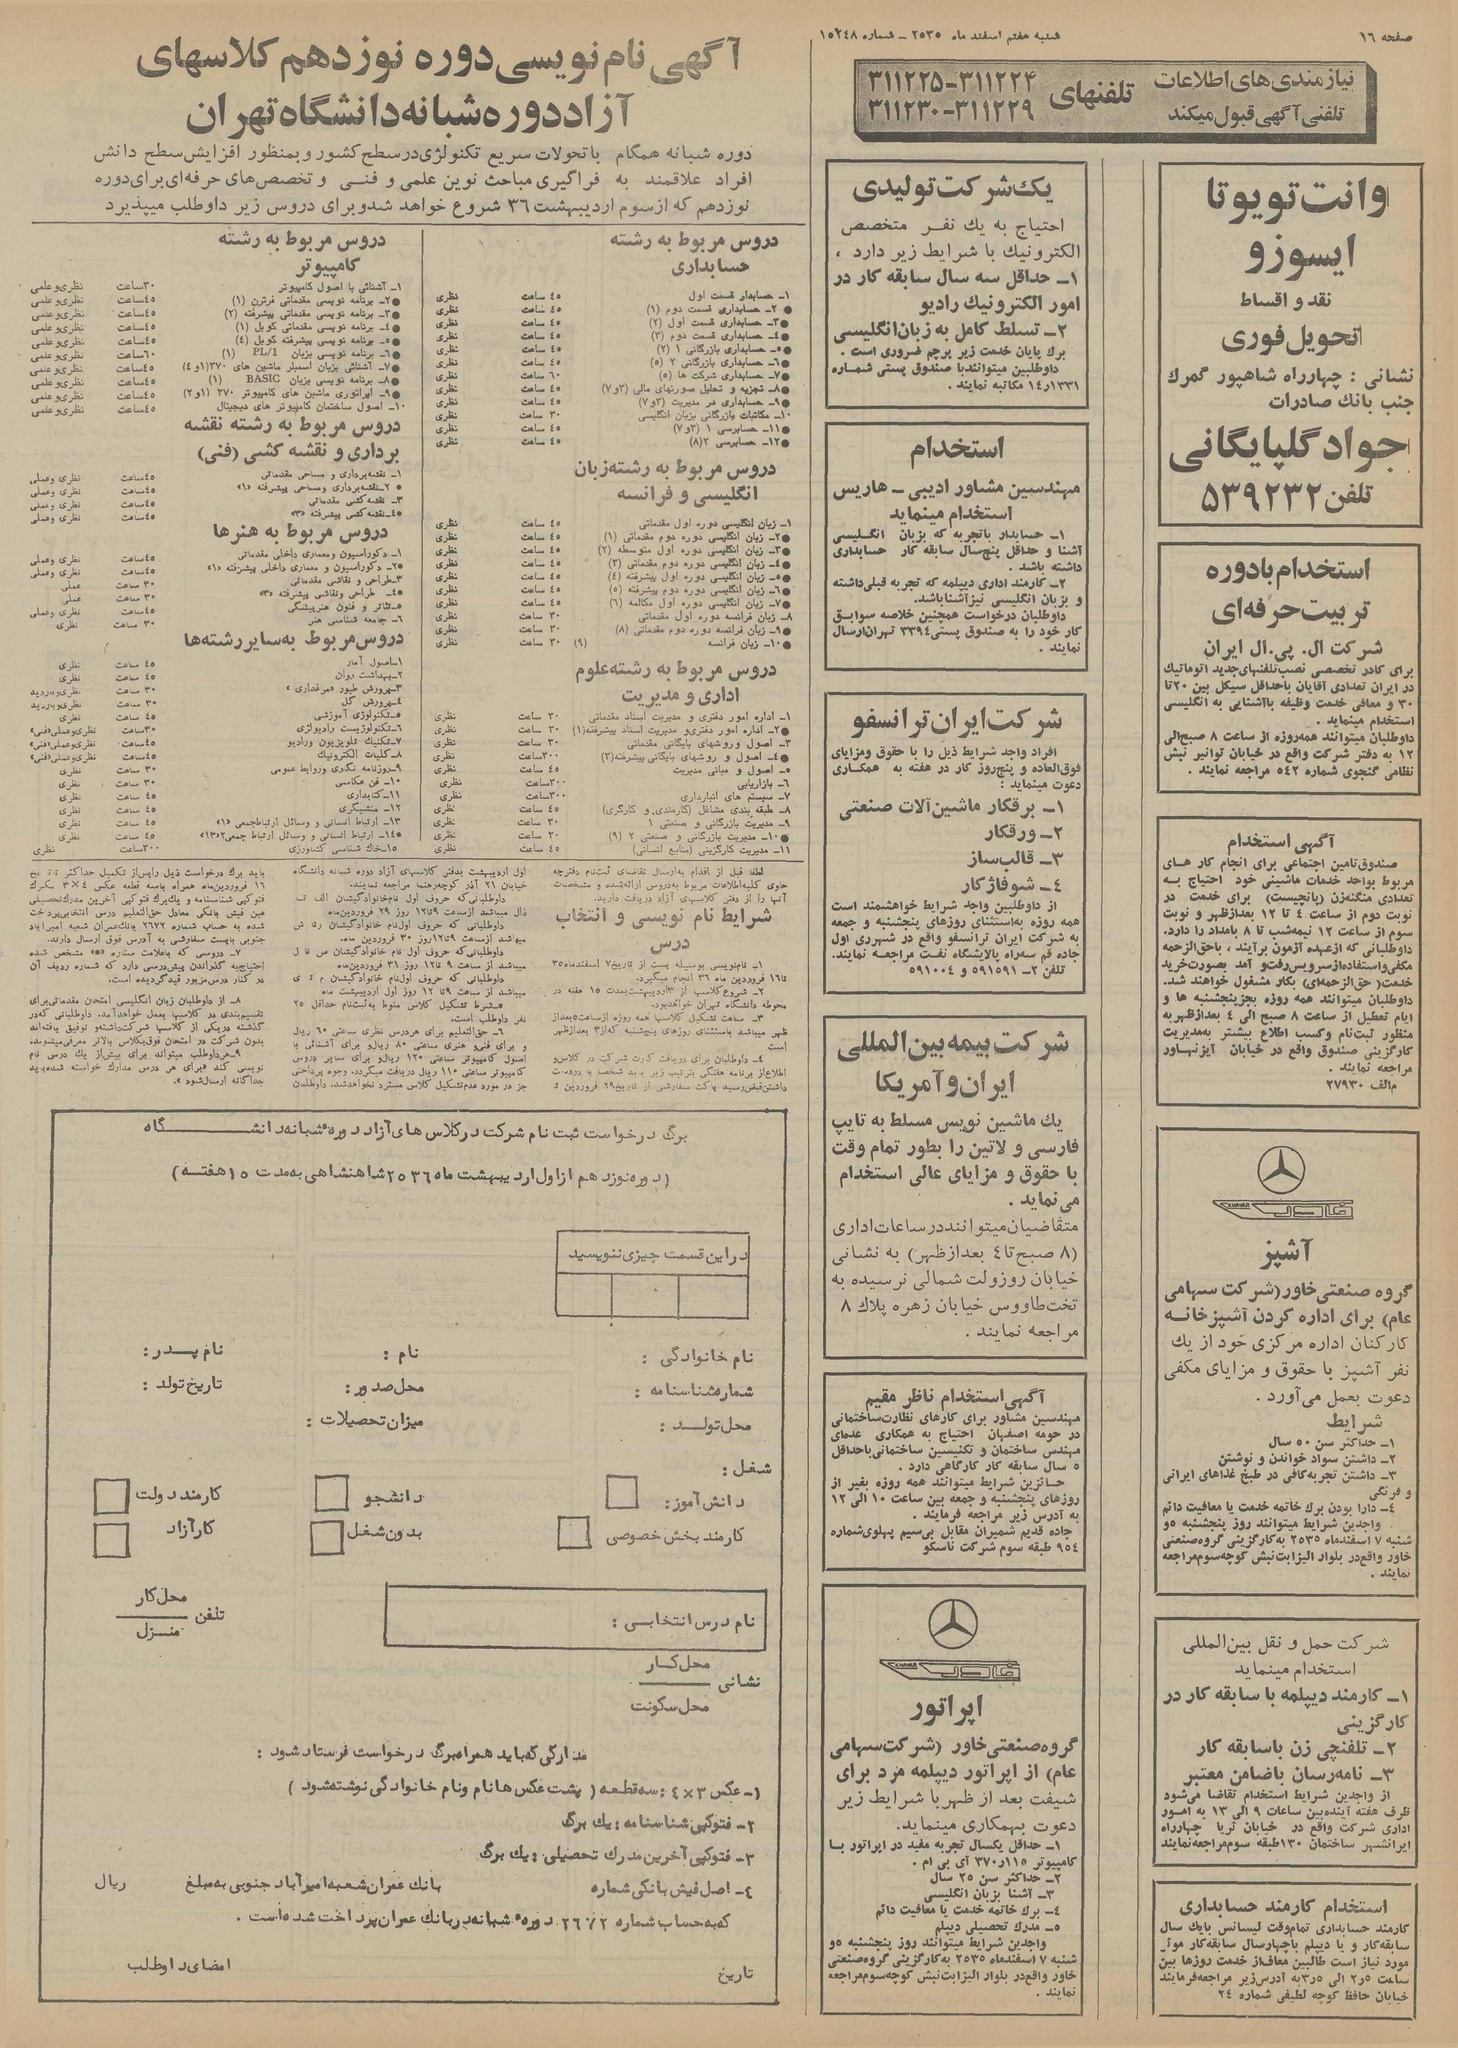 صفحه ۱۶
شنبه هفتم اسفند ماه ۲۵۳۵ ـ شماره ۱۵۲۴۸
نیازمندی‌های اطلاعات
تلفنی آگهی قبول میکند
تلفنهای
۳۱۱۲۲۴-۳۱۱۲۲۵
۳۱۱۲۲۹-۳۱۱۲۳۰
وانت تویوتا
ایسوزو
نقد و اقساط
تحویل فوری
نشانی : چهارراه شاهپور گمرك
جنب بانك صادرات
جواد گلپایگانی
تلفن ۵۳۹۲۳۲
استخدام با دوره
تربیت حرفه‌ای
شرکت ال. پی. ال ایران
برای کادر تخصصی نصب تلفنهای جدید اتوماتیك
در ایران تعدادی آقایان با حداقل سیکل بین ۲۰ تا
۳۰ و معافی خدمت وظیفه با آشنایی به انگلیسی
استخدام مینماید .
داوطلبان میتوانند همه‌روزه از ساعت ۸ صبح الی
۱۲ به دفتر شرکت واقع در خیابان توانیر نبش
نظامی گنجوی شماره ۵۴۲ مراجعه نمایند .
آگهی استخدام
صندوق تامین اجتماعی برای انجام کار های
مربوط بواحد خدمات ماشینی خود احتیاج بـه
تعدادی منگنه‌زن (پانچیست) برای خدمت در
نوبت دوم از ساعت ۴ تا ۱۲ بعدازظهر و نوبت
سوم از ساعت ۱۲ نیمه‌شب تا ۸ بامداد را دارد.
داوطلبانی که از عهده آزمون برآیند ، باحق‌الزحمه
مکفی و استفاده از سرویس رفت و آمد بصورت خرید
خدمت (حق‌الزحمه‌ای) بکار مشغول خواهند شد.
داوطلبان میتوانند همه روزه بجز پنجشنبه ها و
ایام تعطیل از ساعت ۸ صبح الی ۴ بعدازظهر به
منظور ثبت‌نام و کسب اطلاع بیشتر به مدیریت
کارگزینی صندوق واقع در خیابان آیزنهاور
مراجعه نمایند .
م‌الف ۲۷۹۳۰
خاور
KHAWAR
آشپز
گروه صنعتی خاور (شرکت سهامی
عام) برای اداره کردن آشپزخانـه
کارکنان اداره مرکزی خود از یك
نفر آشپز با حقوق و مزایای مکفی
دعوت بعمل می‌آورد .
شرایط
۱ـ حداکثر سن ۵۰ سال
۲ـ داشتن سواد خواندن و نوشتن
۳ـ داشتن تجربه کافی در طبخ غذاهای ایرانی
و فرنگی
۴ـ دارا بودن برك خاتمه خدمت یا معافیت دائم
واجدین شرایط میتوانند روز پنجشنبه ۵و
شنبه ۷ اسفندماه ۲۵۳۵ به کارگزینی گروه صنعتی
خاور واقع در بلوار الیزابت نبش کوچه سوم مراجعه
نمایند .
شرکت حمل و نقل بین‌المللی
استخدام مینماید
۱ـ کارمند دیپلمه با سابقه کار در
کارگزینی
۲ـ تلفنچی زن باسابقه کار
۳ـ نامه‌رسان باضامن معتبر
از واجدین شرایط استخدام تقاضا می‌شود
ظرف هفته آینده بین ساعات ۹ الی ۱۳ به امـور
اداری شرکت واقع در خیابان ثریا چهارراه
ایرانشهر ساختمان ۱۳۰ طبقه سوم مراجعه نمایند
استخدام کارمند حسابداری
کارمند حسابداری تمام‌وقت لیسانس بایك سال
سابقه‌کار و یا دیپلم باچهارسال سابقه‌کار
مورد نیاز است طالبین معاف از خدمت روزها بین
ساعت ۲ر۵ الی ۳ر۵ به آدرس زیر مراجعه فرمایند
خیابان حافظ کوچه لطیفی شماره ۲۴
یك شرکت تولیدی
احتیاج به یك نفـر متخصص
الکترونیك با شرایط زیر دارد ،
۱ـ حداقل سه سال سابقه کار در
امور الکترونیك رادیو
۲ـ تسلط کامل به زبان انگلیسی
برك پایان خدمت زیر پرچم ضروری است .
داوطلبین میتوانند با صندوق پستی شماره
۱۴ر۱۳۳۱ مکاتبه نمایند .
استخدام
مهندسین مشاور ادیبی ـ هاریس
استخدام مینماید
۱ـ حسابدار باتجربه که بزبان انگلیسی
آشنا و حداقل پنج‌سال سابقه کار حسابداری
داشته باشد .
۲ـ کارمند اداری دیپلمه که تجربه قبلی داشته
و بزبان انگلیسی نیز آشنا باشد.
داوطلبان درخواست همچنین خلاصه سوابق
کار خود را به صندوق پستی ۳۳۹۴ تهران ارسال
نمایند .
شرکت ایران ترانسفو
افراد واجد شرایط ذیل را با حقوق ومزایای
فوق‌العاده و پنج‌روز کار در هفته به همکاری
دعوت مینماید :
۱ـ برقکار ماشین‌آلات صنعتی
۲ـ ورقکار
۳ـ قالب‌ساز
۴ـ شوفاژکار
از داوطلبین واجد شرایط خواهشمند است
همه روزه به‌استثنای روزهای پنجشنبه و جمعه
به شرکت ایران ترانسفو واقع در شهرری اول
جاده قم سه‌راه پالایشگاه نفت مراجعه نمایند.
تلفن ۲-۵۹۱۰۵۹۱ و ۵۹۱۰۰۴
شرکت بیمه بین‌المللی
ایران و آمریکا
یك ماشین نویس مسلط به تایپ
فارسی و لاتین را بطور تمام وقت
با حقوق و مزایای عالی استخدام
می‌نماید .
متقاضیان میتوانند در ساعات اداری
(۸ صبح تا ۴ بعدازظهر) به نشانی
خیابان روزولت شمالی نرسیده به
تخت‌طاووس خیابان زهره پلاك ۸
مراجعه نمایند .
آگهی استخدام ناظر مقیم
مهندسین مشاور برای کارهای نظارت ساختمانی
در حومه اصفهان احتیاج به همکاری عده‌ای
مهندس ساختمان و تکنیسین ساختمانی باحداقل
۵ سال سابقه کار کارگاهی دارد .
حائزین شرایط میتوانند همه روزه بغیر از
روزهای پنجشنبه و جمعه بین ساعت ۱۰ الی ۱۲
به آدرس زیر مراجعه فرمایند .
جاده قدیم شمیران مقابل بی‌سیم پهلوی شماره
۹۵۴ طبقه سوم شرکت تاسکو
خاور
KHAWAR
اپراتور
گروه صنعتی خاور (شرکت سهامی
عام) از اپراتور دیپلمه مرد برای
شیفت بعد از ظهر با شرایط زیر
دعوت بهمکاری مینماید.
۱ـ حداقل یکسال تجربه مفید در اپراتور بـا
کامپیوتر ۱۱۵ر۳۷۰ آی بی ام .
۲ـ حداکثر سن ۲۵ سال
۳ـ آشنا بزبان انگلیسی
۴ـ برك خاتمه خدمت یا معافیت دائم
۵ـ مدرك تحصیلی دیپلم
واجدین شرایط میتوانند روز پنجشنبه ۵و
شنبه ۷ اسفندماه ۲۵۳۵ به کارگزینی گروه صنعتی
خاور واقع در بلوار الیزابت نبش کوچه سوم مراجعه
نمایند .
آگهی نام نویسی دوره نوزدهم کلاسهای
آزاد دوره شبانه دانشگاه تهران
دوره شبانه همگام باتحولات سریع تکنولژی در سطح کشور و بمنظور افزایش سطح دانش
افراد علاقمند به فراگیری مباحث نوین علمی و فنـی و تخصص‌های حرفه‌ای برای دوره
نوزدهم که از سوم اردیبهشت ۳۶ شروع خواهد شد و برای دروس زیر داوطلب میپذیرد
دروس مربوط به رشته
حسابداری
۱ـ حسابدار قسمت اول ۴۵ ساعت نظری
●۲ـ حسابداری قسمت دوم (۱) ۴۵ ساعت نظری
●۳ـ حسابداری قسمت اول (۲) ۴۵ ساعت نظری
●۴ـ حسابداری قسمت دوم (۳) ۴۵ ساعت نظری
●۵ـ حسابداری بازرگانی ۱ (۲) ۴۵ ساعت نظری
●۶ـ حسابداری بازرگانی ۲ (۵) ۴۵ ساعت نظری
●۷ـ حسابداری شرکت ها (۵) ۶۰ ساعت نظری
●۸ـ تجزیه و تحلیل صورتهای مالی (۳و۷) ۴۵ ساعت نظری
●۹ـ حسابداری در مدیریت (۳و۷) ۴۵ ساعت نظری
۱۰ـ مکاتبات بازرگانی بزبان انگلیسی ۳۰ ساعت نظری
●۱۱ـ حسابرسی ۱ (۳و۷) ۴۵ ساعت نظری
●۱۲ـ حسابرسی ۲ (۸) ۴۵ ساعت نظری
دروس مربوط به رشته زبان
انگلیسی و فرانسه
۱ـ زبان انگلیسی دوره اول مقدماتی ۴۵ ساعت نظری
●۲ـ زبان انگلیسی دوره دوم مقدماتی (۱) ۴۵ ساعت نظری
●۳ـ زبان انگلیسی دوره اول متوسطه (۲) ۴۵ ساعت نظری
●۴ـ زبان انگلیسی دوره دوم مقدماتی (۳) ۴۵ ساعت نظری
●۵ـ زبان انگلیسی دوره اول پیشرفته (۴) ۴۵ ساعت نظری
●۶ـ زبان انگلیسی دوره دوم پیشرفته (۵) ۴۵ ساعت نظری
●۷ـ زبان انگلیسی دوره اول مکالمه (۶) ۴۵ ساعت نظری
۸ـ زبان فرانسه دوره اول مقدماتی ۳۰ ساعت نظری
●۹ـ زبان فرانسه دوره دوم مقدماتی (۸) ۳۰ ساعت نظری
●۱۰ـ زبان فرانسه (۹) ۳۰ ساعت نظری
دروس مربوط به رشته علوم
اداری و مدیریت
۱ـ اداره امور دفتری و مدیریت اسناد مقدماتی ۳۰ ساعت نظری
●۲ـ اداره امور دفتری و مدیریت اسناد پیشرفته (۱) ۳۰ ساعت نظری
۳ـ اصول و روشهای بایگانی مقدماتی ۳۰ ساعت نظری
●۴ـ اصول و روشهای بایگانی پیشرفته (۳) ۳۰ ساعت نظری
۵ـ اصول و مبانی مدیریت ۴۵ ساعت نظری
۶ـ بازاریابی ۳۰ ساعت نظری
۷ـ سیستم های انبارداری ۳۰ ساعت نظری
۸ـ طبقه بندی مشاغل (کارمندی و کارگری) ۴۵ ساعت نظری
۹ـ مدیریت بازرگانی و صنعتی ۱ ۳۰ ساعت نظری
●۱۰ـ مدیریت بازرگانی و صنعتی ۲ (۹) ۳۰ ساعت نظری
۱۱ـ مدیریت کارگزینی (منابع انسانی) ۴۵ ساعت نظری
دروس مربوط به رشته
کامپیوتر
۱ـ آشنائی با اصول کامپیوتر ۳۰ساعت نظری و علمی
●۲ـ برنامه نویسی مقدماتی فرترن (۱) ۴۵ساعت نظری و علمی
●۳ـ برنامه نویسی مقدماتی پیشرفته (۲) ۴۵ساعت نظری و علمی
●۴ـ برنامه نویسی مقدماتی کوبل (۱) ۴۵ساعت نظری و علمی
●۵ـ برنامه نویسی پیشرفته کوبل (۴) ۴۵ساعت نظری و علمی
●۶ـ برنامه نویسی بزبان PL/1 (۱) ۶۰ساعت نظری و علمی
●۷ـ آشنائی بزبان اسمبلر ماشین های ۳۷۰ (۱و۴) ۴۵ساعت نظری و علمی
●۸ـ برنامه نویسی بزبان BASIC (۱) ۴۵ساعت نظری و علمی
●۹ـ اپراتوری ماشین های کامپیوتر ۳۷۰ (۱و۲) ۴۵ساعت نظری و علمی
۱۰ـ اصول ساختمان کامپیوتر های دیجیتال ۴۵ساعت نظری و علمی
دروس مربوط به رشته نقشه
برداری و نقشه کشی (فنی)
۱ـ نقشه‌برداری و مساحی مقدماتی ۴۵ساعت نظری وعملی
●۲ـ نقشه‌برداری ومساحی پیشرفته «۱» ۴۵ساعت نظری وعملی
۳ـ نقشه کشی مقدماتی ۴۵ساعت نظری وعملی
●۴ـ نقشه‌کشی پیشرفته «۳» ۴۵ساعت نظری وعملی
دروس مربوط به هنرها
۱ـ دکوراسیون ومعماری داخلی مقدماتی ۴۵ساعت نظری وعملی
●۲ـ دکوراسیون و معماری داخلی پیشرفته «۱» ۴۵ساعت نظری وعملی
۳ـ طراحی و نقاشی مقدماتی ۳۰ ساعت عملی
●۴ـ طراحی ونقاشی پیشرفته «۳» ۳۰ ساعت عملی
۵ـ تئاتر و فنون هنرپیشگی ۴۵ ساعت نظری وعملی
۶ـ جامعه شناسی هنر ۳۰ ساعت نظری
دروس مربوط به سایر رشته‌ها
۱ـ اصول آمار ۴۵ ساعت نظری
۲ـ بهداشت روان ۴۵ ساعت نظری
۳ـ پرورش طیور «مرغداری» ۳۰ ساعت نظری و بازدید
۴ـ پرورش گل ۳۰ ساعت نظری و بازدید
۵ـ تکنولوژی آموزشی ۴۵ ساعت نظری
۶ـ تکنولوژیست رادیولژی ۳۰ساعت نظری وعملی «فنی»
۷ـ تکنیك تلویزیون ورادیو ۴۵ساعت نظری وعملی «فنی»
۸ـ کلیات الکترونیك ۴۵ساعت نظری وعملی «فنی»
۹ـ روزنامه نگاری وروابط عمومی ۳۰ ساعت نظری
۱۰ـ فن عکاسی ۳۰ ساعت نظری
۱۱ـ کتابداری ۴۵ ساعت نظری
۱۲ـ منشیگری ۴۵ ساعت نظری
۱۳ـ ارتباط انسانی و وسائل ارتباط جمعی «۱» ۴۵ ساعت نظری
●۱۴ـ ارتباط انسانی و وسائل ارتباط جمعی «۱۳»۲ ۴۵ ساعت نظری
۱۵ـ خاك شناسی کشاورزی ۳۰ساعت نظری
لطفا قبل از اقدام به‌ارسال تقاضای ثبت‌نام دفترچه
حاوی کلیه‌اطلاعات مربوط به‌دروس ارائه‌شده و مشخصات
آنها را از دفتر کلاسهای آزاد دریافت دارید.
شرایط نام نویسی و انتخاب
درس
۱ـ نام‌نویسی بوسیله پست از تاریخ ۷ اسفندماه ۳۵
تا ۱۶ فروردین ماه ۳۶ انجام میگیرد.
۲ـ شروع کلاسها از ۳ اردیبهشت بمدت ۱۵ هفته در
محوطه دانشگاه تهران خواهد بود.
۳ـ ساعت تشکیل کلاسها همه روزه از ساعت ۵ بعداز
ظهر میباشد باستثنای روزهای پنج‌شنبه که از ۳ بعدازظهر
است
۴ـ داوطلبان برای دریافت کارت شرکت در کلاس و
اطلاع از برنامه هفتگی بترتیب زیر باید شخصا با در دست
داشتن قبض رسید پاکت سفارشی از تاریخ ۲۹ فروردین تا
اول اردیبهشت بدفتر کلاسهای آزاد دوره شبانه دانشگاه
خیابان ۲۱ آذر کوچه‌رهنما مراجعه نمایند.
داوطلبانی که حروف اول نام خانوادگیشان الف تا
ذال میباشد از ساعت ۹ تا ۱۲ روز ۲۹ فروردین‌ماه
داوطلبانی که حروف اول نام خانوادگیشان ر تا ش
میباشد از ساعت ۹ تا ۱۲ روز ۳۰ فروردین ماه
داوطلبانی که حروف اول نام خانوادگیشان ص تا ل
میباشد از ساعت ۹ تا ۱۲ روز ۳۱ فروردین ماه
داوطلبانی که حروف اول نام خانوادگیشان م تا ی
میباشد از ساعت ۹ تا ۱۲ روز اول اردیبهشت ماه
۵ـ شرط تشکیل کلاس منوط به ثبت‌نام حداقل ۲۵
نفر داوطلب است.
۶ـ حق‌التعلیم برای هر درس نظری ساعتی ۶۰ ریال
و برای فنی و هنری ساعتی ۸۰ ریال و برای آشنائی با
اصول کامپیوتر ساعتی ۱۲۰ ریال و برای سایر دروس
کامپیوتر ساعتی ۱۱۰ ریال دریافت میگردد. وجوه پرداختی
جز در مورد عدم تشکیل کلاس مسترد نخواهد شد. داوطلبان
باید برك درخواست ذیل را پس از تکمیل حداکثر تا تاریخ
۱۶ فروردین‌ماه همراه باسه قطعه عکس ۴×۳ یکبرك
فتوکپی شناسنامه و یك‌برك فتوکپی آخرین مدرك تحصیلی
عین فیش بانکی معادل حق‌التعلیم درس انتخابی پرداخت
شده به حساب شماره ۲۶۷۲ بانك عمران شعبه امیرآباد
جنوبی باپست سفارشی به آدرس فوق ارسال دارند.
۷ـ دروسی که باعلامت ستاره «●» مشخص شده
احتیاج به گذراندن پیش‌درسی دارد که شماره ردیف آن
در کنار درس مزبور قید گردیده است.
۸ـ از داوطلبان زبان انگلیسی امتحان مقدماتی برای
تقسیم‌بندی در کلاسها بعمل خواهد آمد. داوطلبانی که در
گذشته در یکی از کلاسها شرکت داشته و توفیق یافته‌اند
بدون شرکت در امتحان فوق بکلاس بالاتر معرفی میشوند.
۹ـ هر داوطلب میتواند برای بیش از یك درس نام
نویسی کند «برای هر درس مدارك خواسته شده باید
جداگانه ارسال شود».
برگ درخواست ثبت نام شرکت در کلاس های آزاد دوره شبانه دانشگاه
(دوره نوزدهم از اول اردیبهشت ماه ۲۵۳۶ شاهنشاهی به مدت ۱۵ هفته)
در این قسمت چیزی ننویسید
نام خانوادگی : نام : نام پدر :
شماره شناسنامه : محل صدور : تاریخ تولد :
محل تولد : میزان تحصیلات :
شغل :
دانش آموز : دانشجو کارمند دولت
کارمند بخش خصوصی بدون شغل کار آزاد
نام درس انتخابی :
تلفن محل کار
منزل
نشانی محل کار
محل سکونت
مدارکی که باید همراه برگ درخواست فرستاد شود :
۱ـ عکس ۳×۴ : سه قطعه ( پشت عکس ها نام ونام خانوادگی نوشته شود )
۲ـ فتوکپی شناسنامه : یك برگ
۳ـ فتوکپی آخرین مدرك تحصیلی : یك برگ
۴ـ اصل فیش بانکی شماره بانك عمران شعبه امیرآباد جنوبی به مبلغ ریال
که به حساب شماره ۲۶۷۲ دوره شبانه در بانك عمران پرداخت شده است .
تاریخ امضای داوطلب